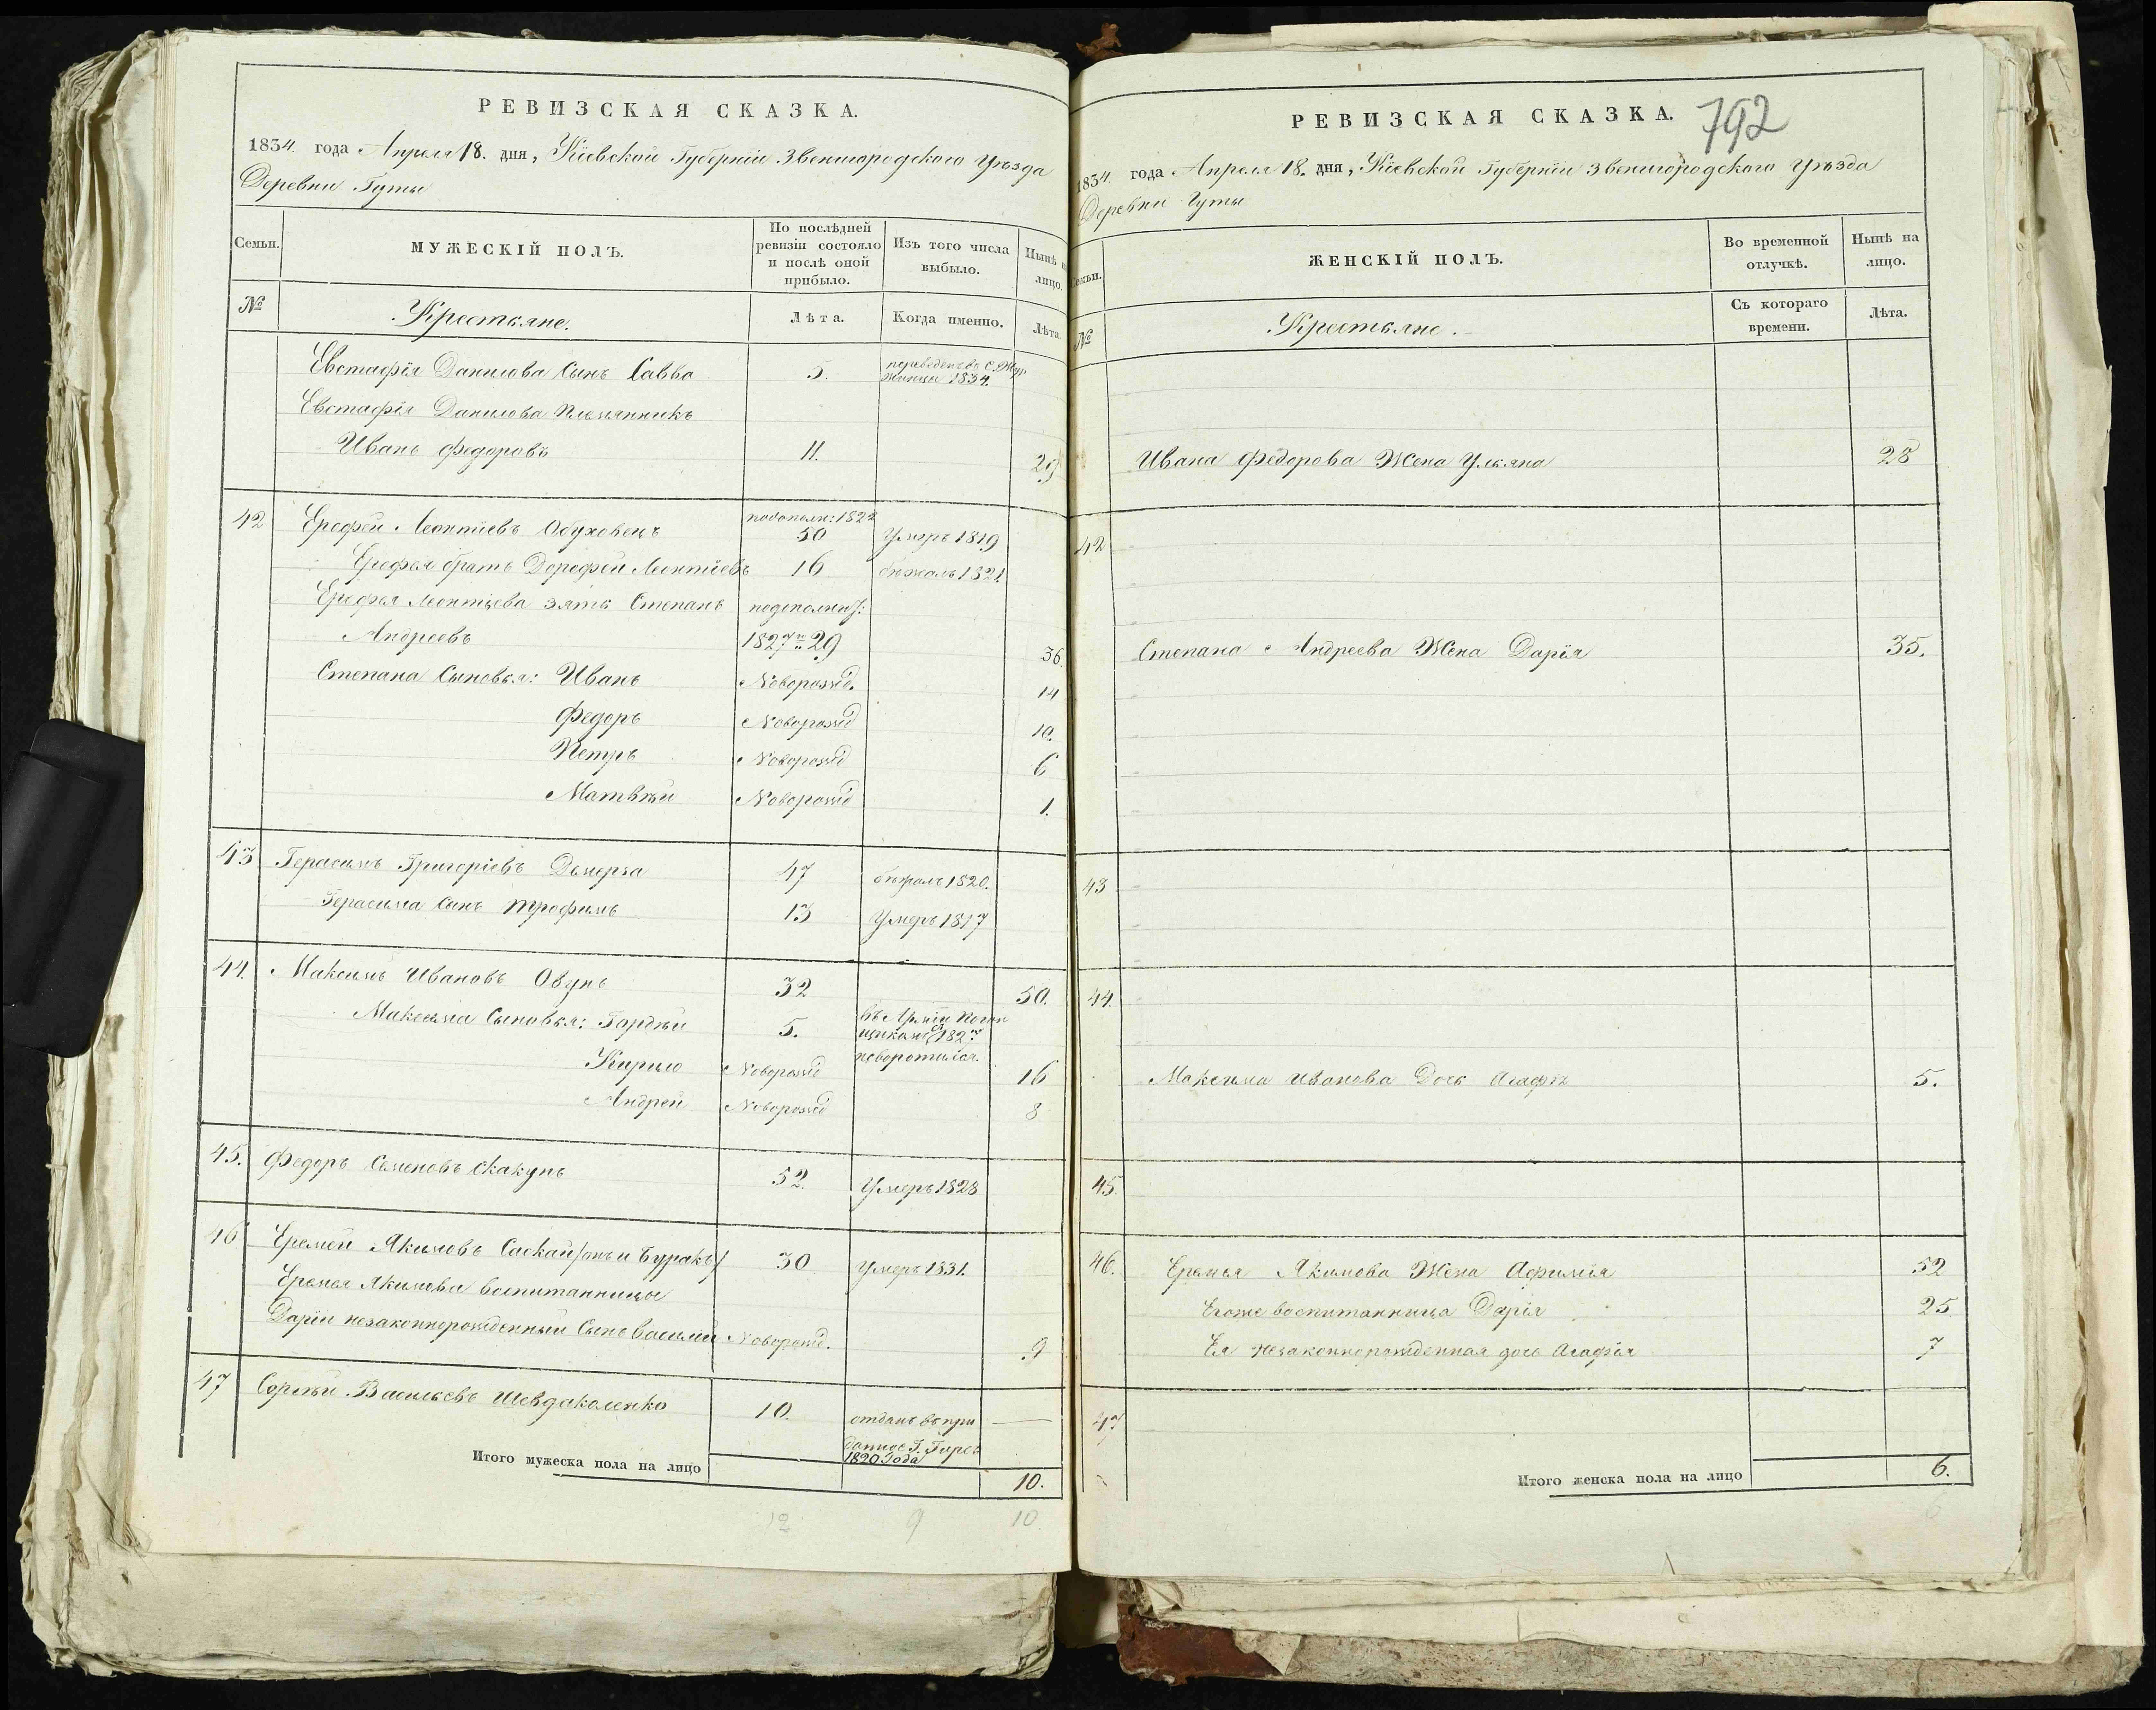 РЕВИЗСКАЯ СКАЗКА.
1834. года Апреля 18. дня, Кіевской Губерніи Звенигородского Уѣзда
Деревни Гуты
Семьи.
МУЖЕСКІЙ ПОЛЪ.
По послѣдней ревизіи состояло и послѣ оной прибыло.
Изъ того числа выбыло.
Нынѣ на лицо.
№
Крестьяне.
Лѣта.
Когда именно.
Лѣта.
Евстафія Данилова Сынъ Савва 5. переведенъ во С.
1834.
Евстафія Данилова Племянникъ
Иванъ Федоровъ 11. 29
42 Ерофей Леонтіевъ Обуховецъ 50 Умеръ 1819
Ерофея братъ Дорофей Леонтіевъ 16 бѣжалъ 1821
Ерофея Леонтіева зять Степанъ
Андреевъ 1827 29 36.
Степана Сыновья: Иванъ Новорожд. 14
Федоръ Новорожд 10.
Петръ Новорожд 6
Матвѣй Новорожд 1.
43 Герасимъ Григоріевъ 47 бѣжалъ 1820.
Герасима Сынъ Трофимъ 13 Умеръ 1817
44. Максимъ Ивановъ 32 50.
Максима Сыновья: Гордѣй 5. въ Арміи Погон
щикомъ 182
Кирило Новорожд 16
Андрей Новорожд 8
45. Федоръ Семеновъ Скакунъ 52. Умеръ 1828
46 Еремей Якимовъ Саскай /онъ и Буракъ/ 30 Умеръ 1831.
Еремея Якимова воспитанницы
Даріи незаконнорожденный Сынъ Василий Новорожд. 9
47 Сергѣй Васильевъ 10. отданъ въ при
данное Г.
1820 Года
Итого мужеска пола на лицо 10.
12 9 10
РЕВИЗСКАЯ СКАЗКА. 792
1834. года Апреля 18. дня, Кіевской Губерніи Звенигородского Уѣзда
Деревни Гуты
Семьи.
ЖЕНСКІЙ ПОЛЪ.
Во временной отлучкѣ.
Нынѣ на лицо.
№
Крестьяне.
Съ котораго времени.
Лѣта.
Ивана Федорова Жена Ульяна 28
42
Степана Андреева Жена Дарія 35.
43
44.
Максима Иванова Дочь Агафія 5.
45.
46. Еремея Якимова Жена Афимія 52
Егоже воспитанница Дарія 25
Ея незаконнорожденная дочь Агафія 7
47
Итого женска пола на лицо 6.
6